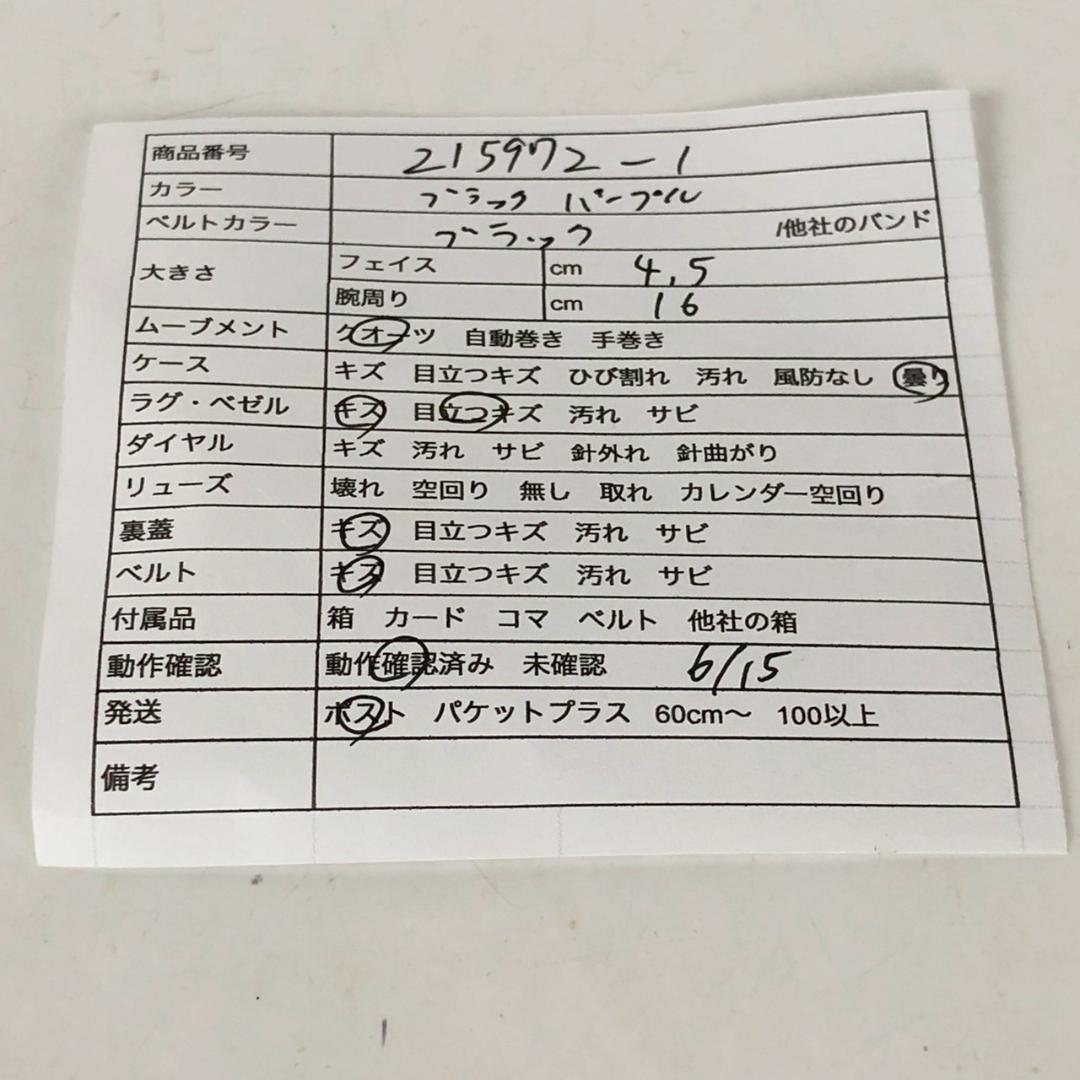 商品番号 215972-1
カラー ブラック パープル
ベルトカラー ブラック /他社のバンド
大きさ フェイス cm 4.5
腕周り cm 16
ムーブメント クオーツ 自動巻き 手巻き
ケース キズ 目立つキズ ひび割れ 汚れ 風防なし 曇り
ラグ・ベゼル キズ 目立つキズ 汚れ サビ
ダイヤル キズ 汚れ サビ 針外れ 針曲がり
リューズ 壊れ 空回り 無し 取れ カレンダー空回り
裏蓋 キズ 目立つキズ 汚れ サビ
ベルト キズ 目立つキズ 汚れ サビ
付属品 箱 カード コマ ベルト 他社の箱
動作確認 動作確認済み 未確認 6/15
発送 ポスト パケットプラス 60cm～ 100以上
備考